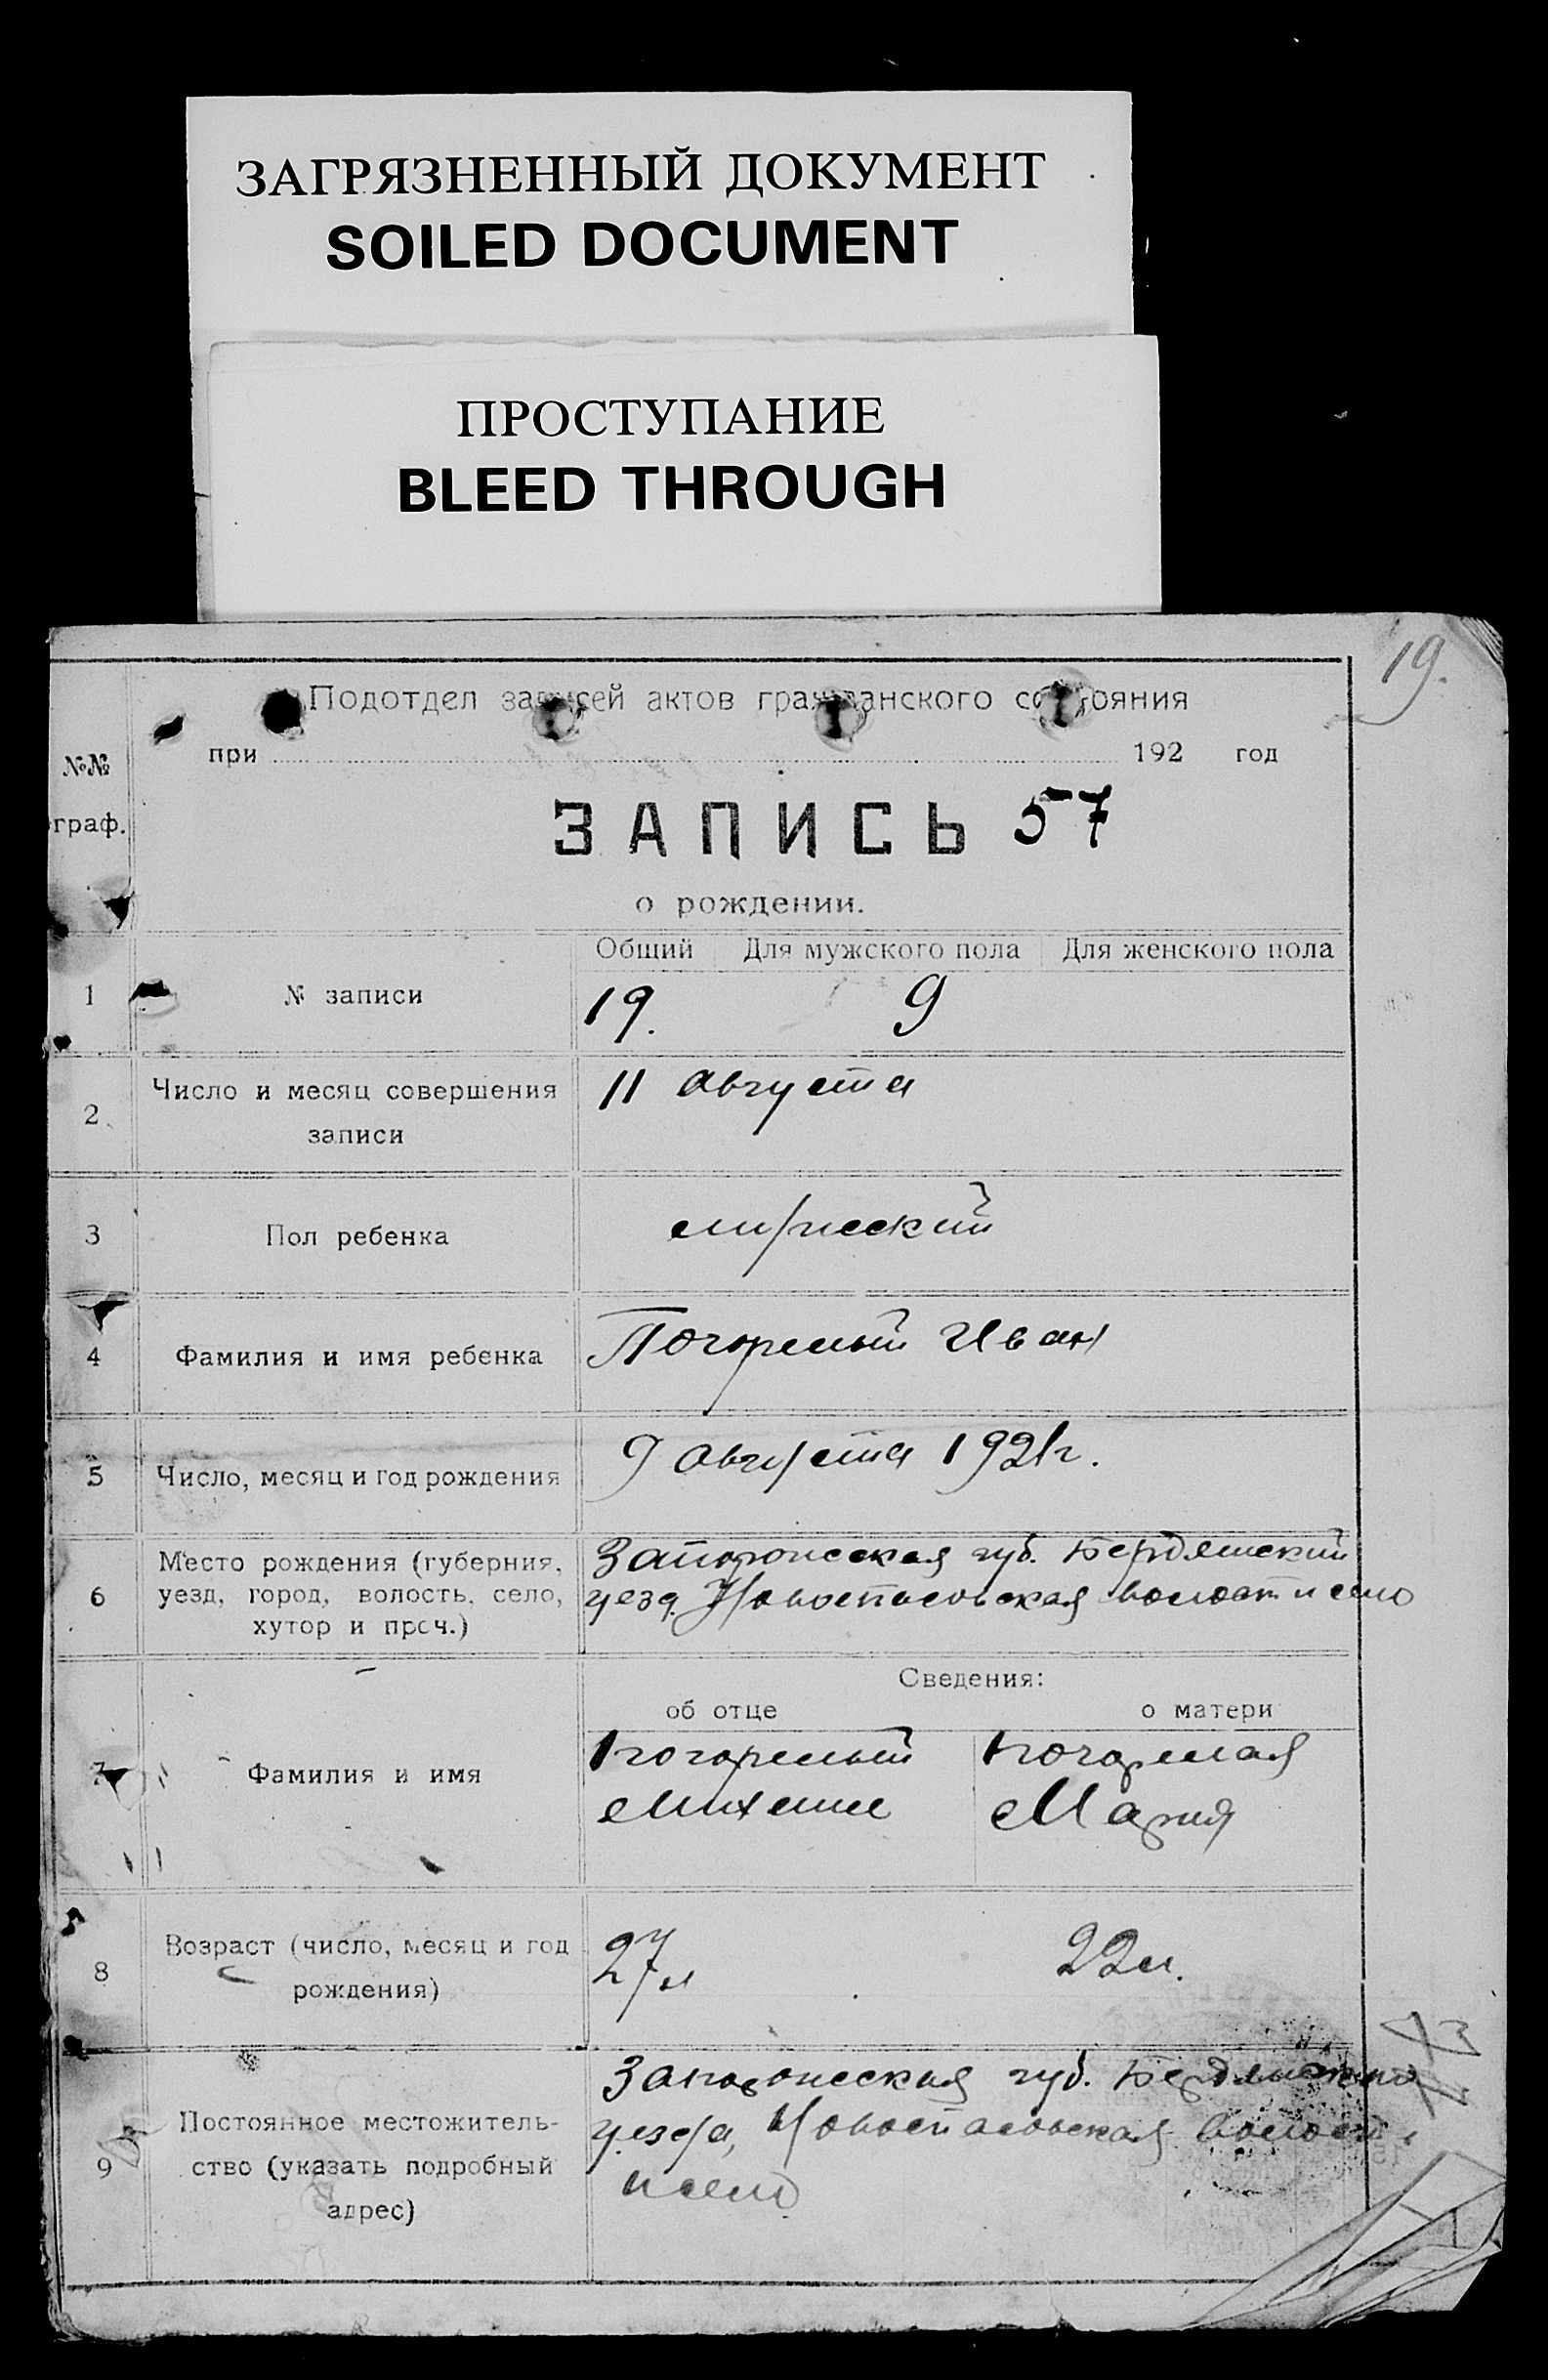 ЗАГРЯЗНЕННЫЙ ДОКУМЕНТ
SOILED DOCUMENT
ПРОСТУПАНИЕ
BLEED THROUGH
19.
Подотдел записей актов гражданского состояния
при 192 год
№№
граф.
ЗАПИСЬ 57
о рождении.
Общий Для мужского пола Для женского пола
1 № записи 19. 9
2 Число и месяц совершения
записи
11 августа
3 Пол ребенка мужеский
4 Фамилия и имя ребенка Погорелый Иван
5 Число, месяц и год рождения 9 августа 1921г.
6 Место рождения (губерния,
уезд, город, волость, село,
хутор и проч.)
Запорожская губ. Бердянский
уезд. Новоспасовская волост и село
Сведения:
об отце о матери
7 Фамилия и имя
Погорелый Погорелая
Михаил Мария
8 Возраст (число, месяц и год
рождения)
27л 22л.
9 Постоянное местожитель-
ство (указать подробный
адрес)
Запорожская губ. Бердянского
уезда, Новоспасовская волост
и село